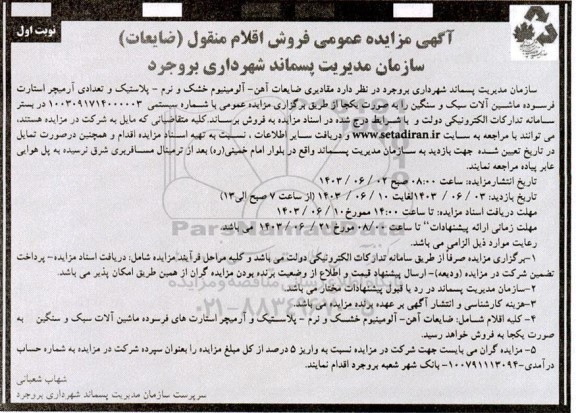 نوبت اول
آگهی مزایده عمومی فروش اقلام منقول (ضایعات)
سازمان مدیریت پسماند شهرداری بروجرد
سازمان مدیریت پسماند شهرداری بروجرد در نظر دارد مقادیری ضایعات آهن- آلومینیوم خشک و نرم - پلاستیک و تعدادی آرمیچر استارت
فرسوده ماشین آلات سبک و سنگین را به صورت یکجا از طریق برگزاری مزایده عمومی با شماره سیستمی ۱۰۰۳۰۹۱۷۱۴۰۰۰۰۰۳ در بستر
سامانه تدارکات الکترونیکی دولت و با شرایط درج شده در اسناد مزایده به فروش برساند. کلیه متقاضیانی که مایل به شرکت در مزایده هستند،
می توانند با مراجعه به سایت www.setadiran.ir و دریافت سایر اطلاعات ، نسبت به تهیه اسناد مزایده اقدام و همچنین درصورت تمایل
در تاریخ تعیین شده جهت بازدید به سازمان مدیریت پسماند واقع در بلوار امام خمینی(ره) بعد از ترمینال مسافربری شرق نرسیده به پل هوایی
عابر پیاده مراجعه نمایند.
تاریخ انتشار مزایده: ساعت ۰۸:۰۰ صبح ۰۲ / ۰۶ / ۱۴۰۳
تاریخ بازدید: ۰۳ / ۰۶ / ۱۴۰۳ لغایت ۱۰ / ۰۶ / ۱۴۰۳ (از ساعت ۷ صبح الی۱۳)
مهلت دریافت اسناد مزایده: تا ساعت ۱۴:۰۰ مورخ ۱۰ / ۰۶ / ۱۴۰۳
مهلت زمانی ارائه پیشنهادات" تا ساعت ۰۸:۰۰ مورخ ۲۱ / ۰۶ / ۱۴۰۳ می باشد.
رعایت موارد ذیل الزامی می باشد.
۱-برگزاری مزایده صرفا از طریق سامانه تدارکات الکترونیکی دولت می باشد و کلیه مراحل فرآیند مزایده شامل: دریافت اسناد مزایده- پرداخت
تضمین شرکت در مزایده (ودیعه)- ارسال پیشنهاد قیمت و اطلاع از وضعیت برنده بودن مزایده گران از همین طریق امکان پذیر می باشد.
۲-سازمان مدیریت پسماند در رد یا قبول پیشنهادات مختار می باشد.
۳-هزینه کارشناسی و انتشار آگهی بر عهده برنده مزایده می باشد.
۴-کلیه اقلام شامل: ضایعات آهن- آلومینیوم خشک و نرم - پلاستیک و آرمیچر استارت های فرسوده ماشین آلات سبک و سنگین به
صورت یکجا به فروش خواهد رسید.
۵- مزایده گران می بایست جهت شرکت در مزایده نسبت به واریز ۵ درصد از کل مبلغ مزایده را بعنوان سپرده شرکت در مزایده به شماره حساب
درآمدی-۱۰۰۷۹۱۱۱۳۰۹۴ بانک شهر شعبه بروجرد اقدام نمایند.
شهاب شعبانی
سرپرست سازمان مدیریت پسماند شهرداری بروجرد